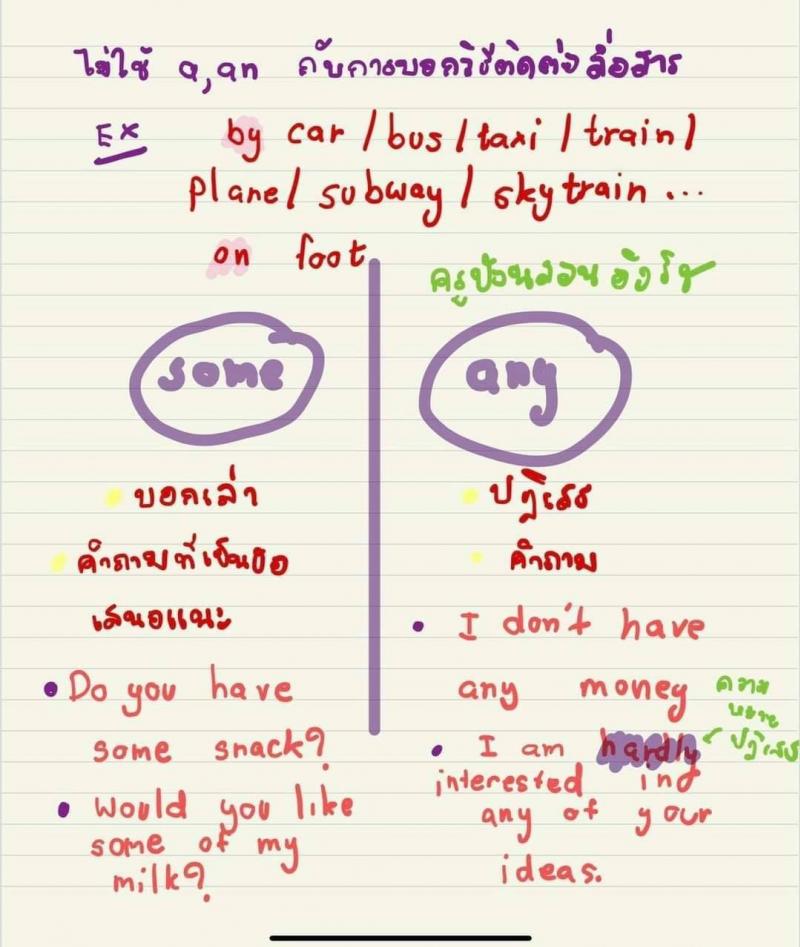 ไม่ใช้ a, an กับการบอกวิธีติดต่อสื่อสาร
EX by car / bus / taxi / train /
plane / subway / sky train ...
on foot
ครูป้อนสอนอังกฤษ
some
บอกเล่า
คำถามที่เป็นข้อ
เสนอแนะ
Do you have
some snack?
would you like
some of my
milk?
any
ปฏิเสธ
คำถาม
I don't have
any money
I am hardly
interested in
any of your
ideas.
ความ
หมาย
ปฏิเสธ